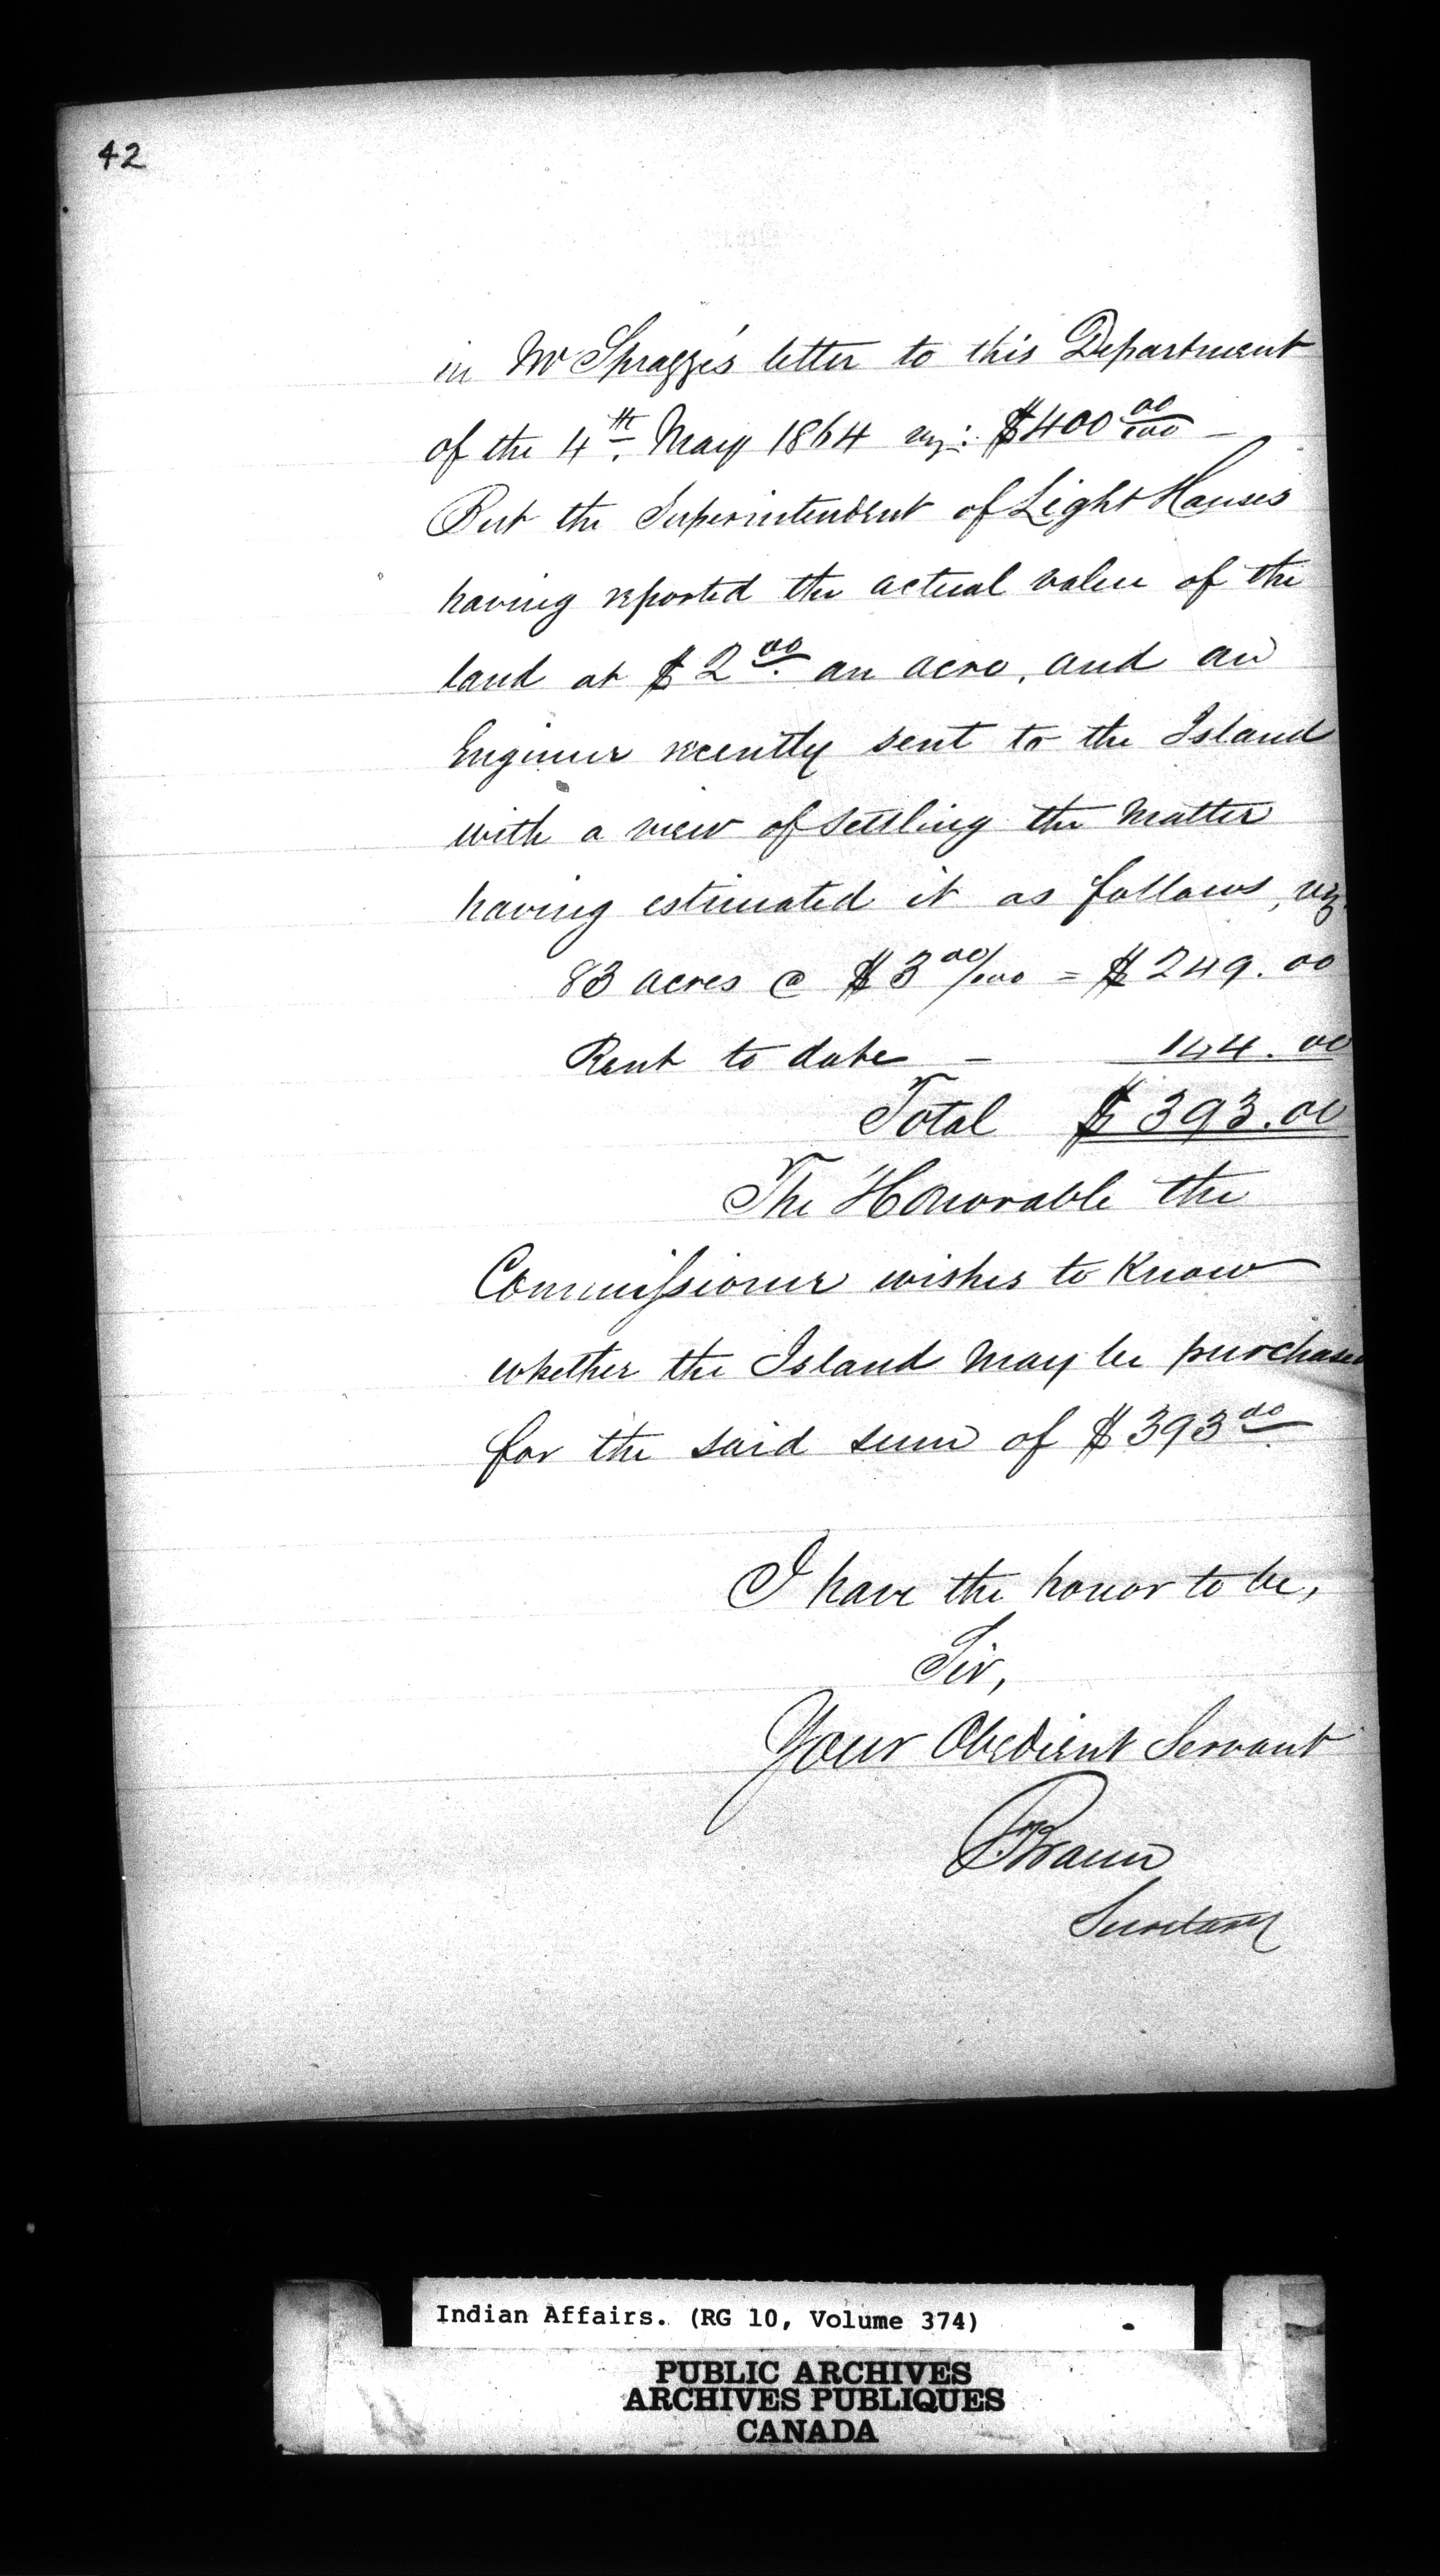 42
in Mr Spragge's letter to this Department
of the 4th. May 1864 viz: $400 00/100 –
But the Superintendent of Light Houses
having reported the actual value of the
land at $2 00. an acre, and an
Engineer recently sent to the Island
with a view of settling the matter
having estimated it as follows, viz.
83 acres @ $3 00/100 = $249.00
Rent to date – 144.00
Total $393.00
The Honorable the
Commissioner wishes to know
whether the Island may be purchased
for the said sum of $393 00.
I have the honor to be,
Sir,
Your Obedient Servant
F Braun
Secretary
Indian Affairs. (RG 10, Volume 374)
PUBLIC ARCHIVES
ARCHIVES PUBLIQUES
CANADA